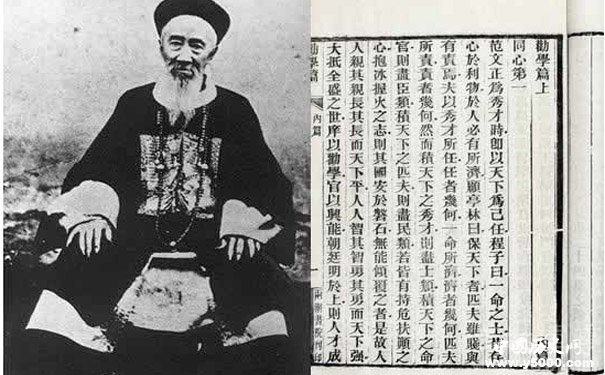 勸學篇上
同心第一
范文正爲秀才時卽以天下爲己任程子曰一命之士苟存
心於利物於人必有所濟顧亭林曰保天下者匹夫雖賤與
有責焉夫以秀才所任任者幾何一命所濟濟者幾何匹夫
所責責者幾何然而積天下之秀才則盡士類積天下之命
官則盡臣類積天下之匹夫則盡民類若皆有持危扶顛之
心抱冰握火之志則其國安於磐石無能傾覆之者是故人
人親其親長其長而天下平人人智其智勇其勇而天下强
大抵全盛之世庠以勸學官以興能朝廷明於上則人才成
勸學篇 內篇
兩湖書院刊印
www.y5000.com